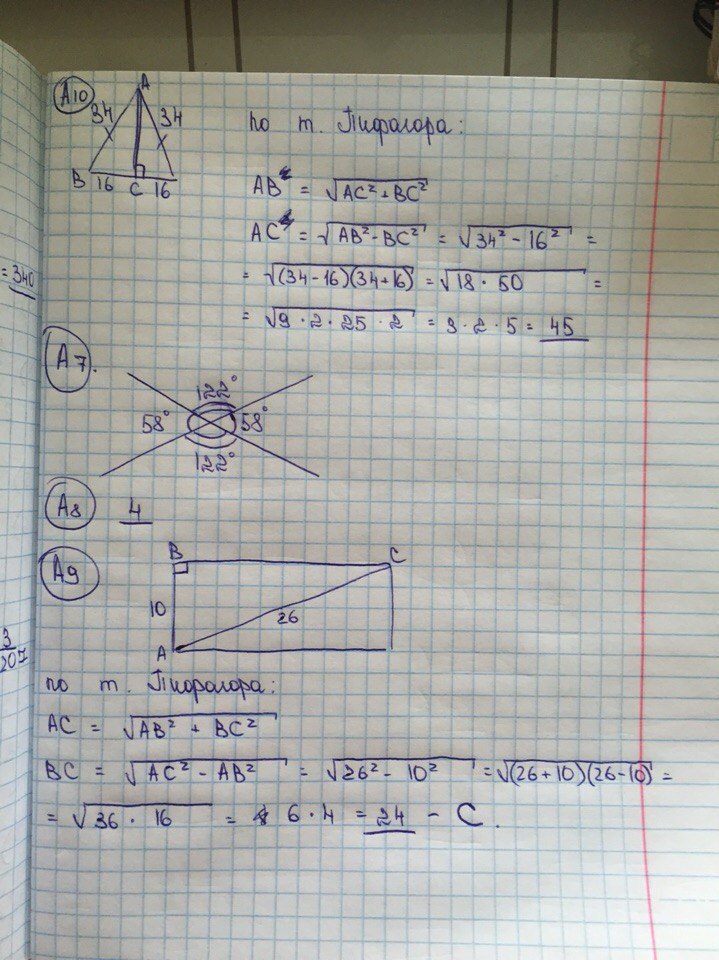 A10
A
34 34
B 16 C 16
по т. Пифагора:
AB = √AC² + BC²
AC = √AB² - BC² = √34² - 16² =
= √(34-16)(34+16) = √18 · 50 =
= √9 · 2 · 25 · 2 = 3 · 2 · 5 = 45
= 340
A7.
122°
58° 58°
122°
A8 4
A9
B C
10
26
A
3
207
по т. Пифагора:
AC = √AB² + BC²
BC = √AC² - AB² = √26² - 10² = √(26+10)(26-10) =
= √36 · 16 = 6 · 4 = 24 - C.